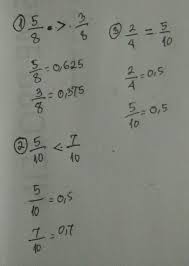 ① 5/8 > 3/8
5/8 = 0,625
3/8 = 0,375
② 5/10 < 7/10
5/10 = 0,5
7/10 = 0,7
③ 2/4 = 5/10
2/4 = 0,5
5/10 = 0,5